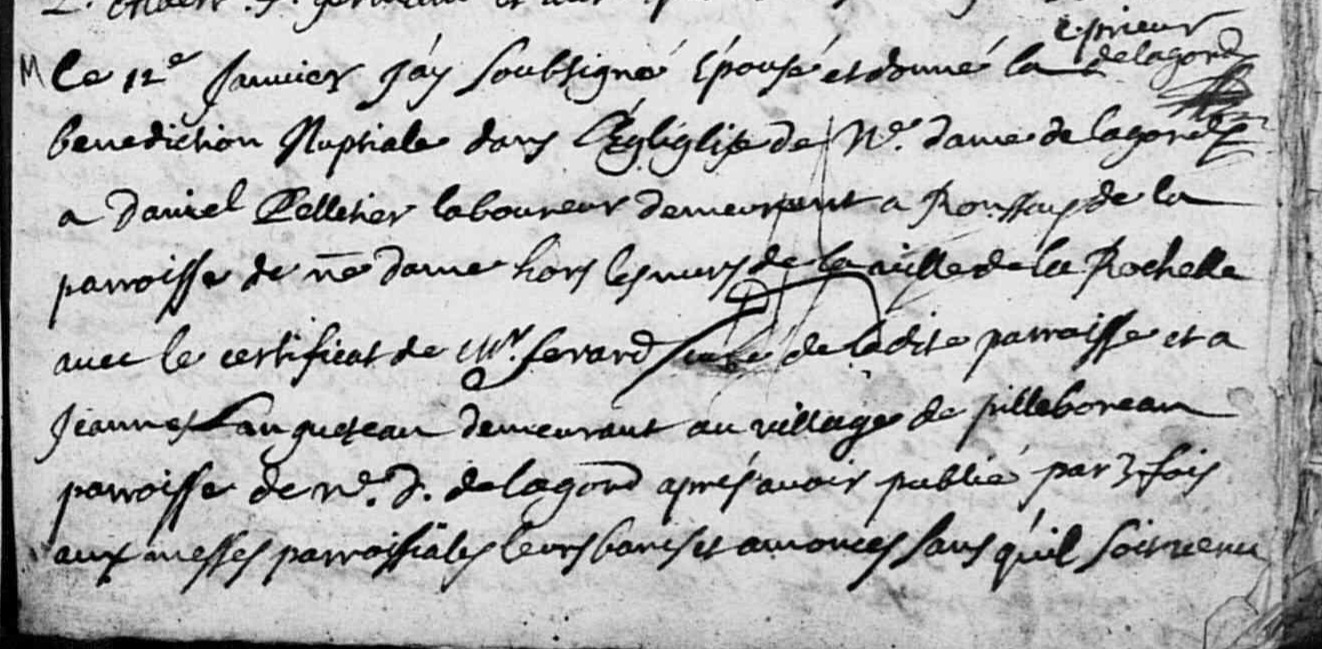 c. prieur
M Le 12e Janvier Jáy soubsigné Épousé et donné la de lagord
benediction Nuptiale dans l'Égliglise de Ne. dame de lagord
a Daniel Pelletier laboureur demeurant a Ronssay de la
parroisse de ne dame hors les murs de la ville de la Rochelle
avec le certificat de Mr. ferard curé de ladite parroisse et a
Jeanne Langueteau demeurant au village de pilleboreau
parroisse de Ne. D. de lagord aprés avoir publié par 3 fois
aux messes parroissiales leurs bancs et annonces sans qu'il soit venu